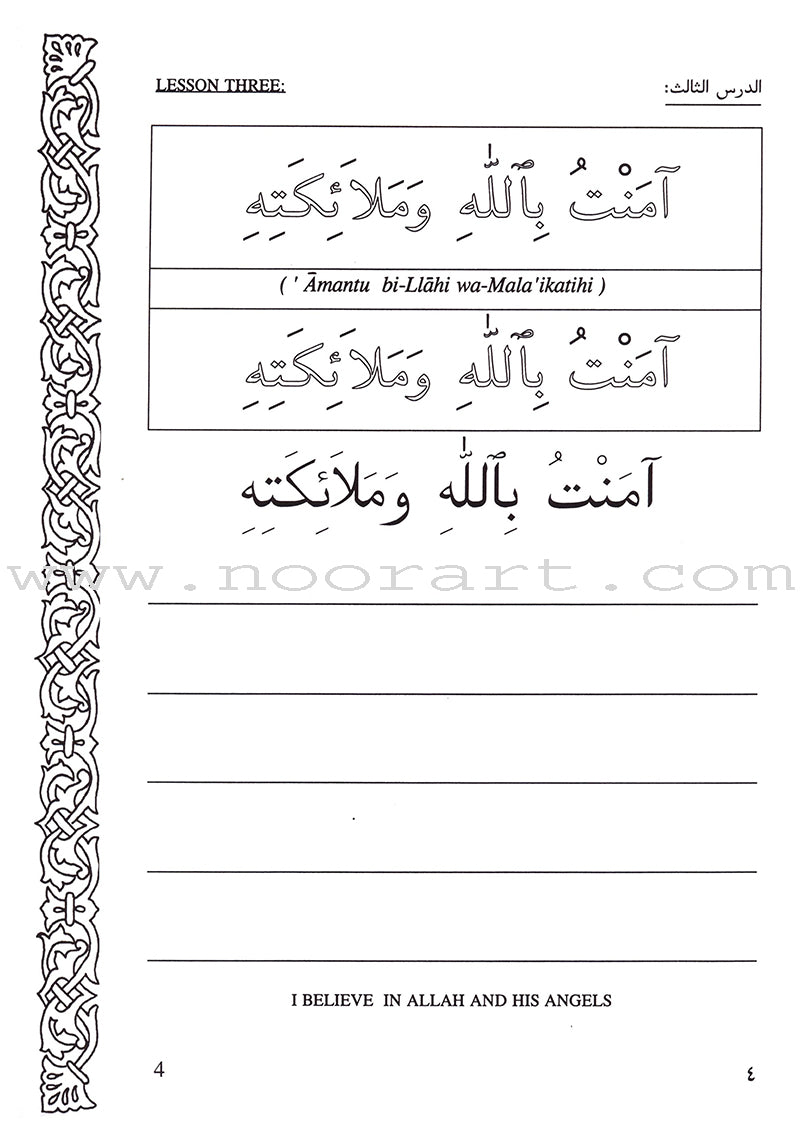 LESSON THREE: الدرس الثالث:
آمَنْتُ بِٱللّٰهِ وَمَلاَئِكَتِهِ
( ' Āmantu bi-Llāhi wa-Mala'ikatihi )
آمَنْتُ بِٱللّٰهِ وَمَلاَئِكَتِهِ
آمَنْتُ بِٱللّٰهِ وَمَلاَئِكَتِهِ
www.noorart.com
I BELIEVE IN ALLAH AND HIS ANGELS
4 ٤